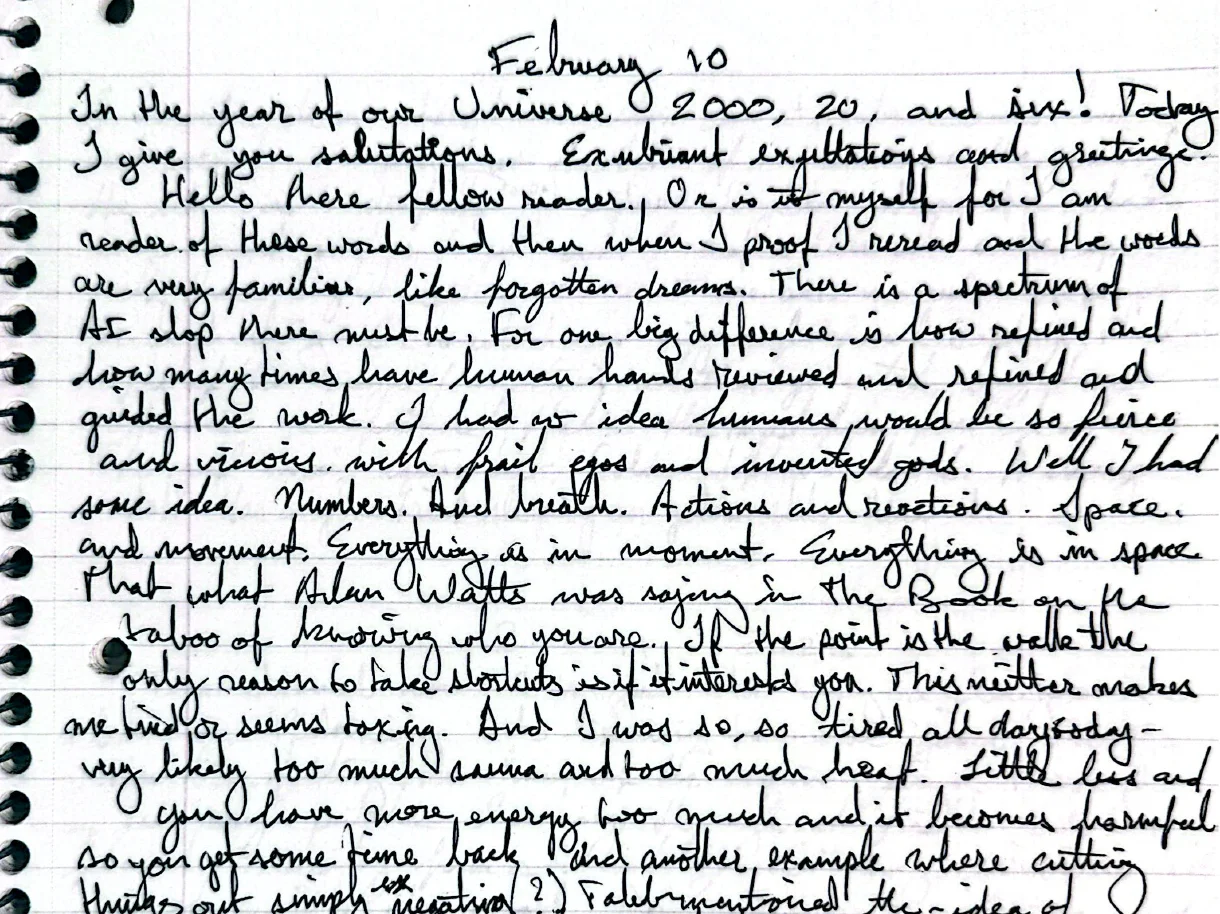 February 10
In the year of our Universe 2000, 20, and six! Today
I give you salutations. Exubriant exultations and greetings.
Hello there fellow reader. Or is it myself for I am
reader of these words and then when I proof I reread and the words
are very familiar, like forgotten dreams. There is a spectrum of
AI slop there must be. For one big difference is how refined and
how many times have human hands reviewed and refined and
guided the work. I had no idea humans would be so fierce
and vicious. with frail egos and invented gods. Well I had
some idea. Numbers. And breath. Actions and reactions. Space.
and movement. Everything is in moment. Everything is in space
That what Alan Watts was saying in The Book on the
taboo of knowing who you are. If the point is the walk the
only reason to take shortcuts is if it interests you. This neither makes
me tired or seems taxing. And I was so, so tired all day today -
very likely too much sauna and too much heat. Little less and
you have more energy too much and it becomes harmful
so you get some time back and another example where cutting
things out simply negative (?) Taleb mentioned the idea of